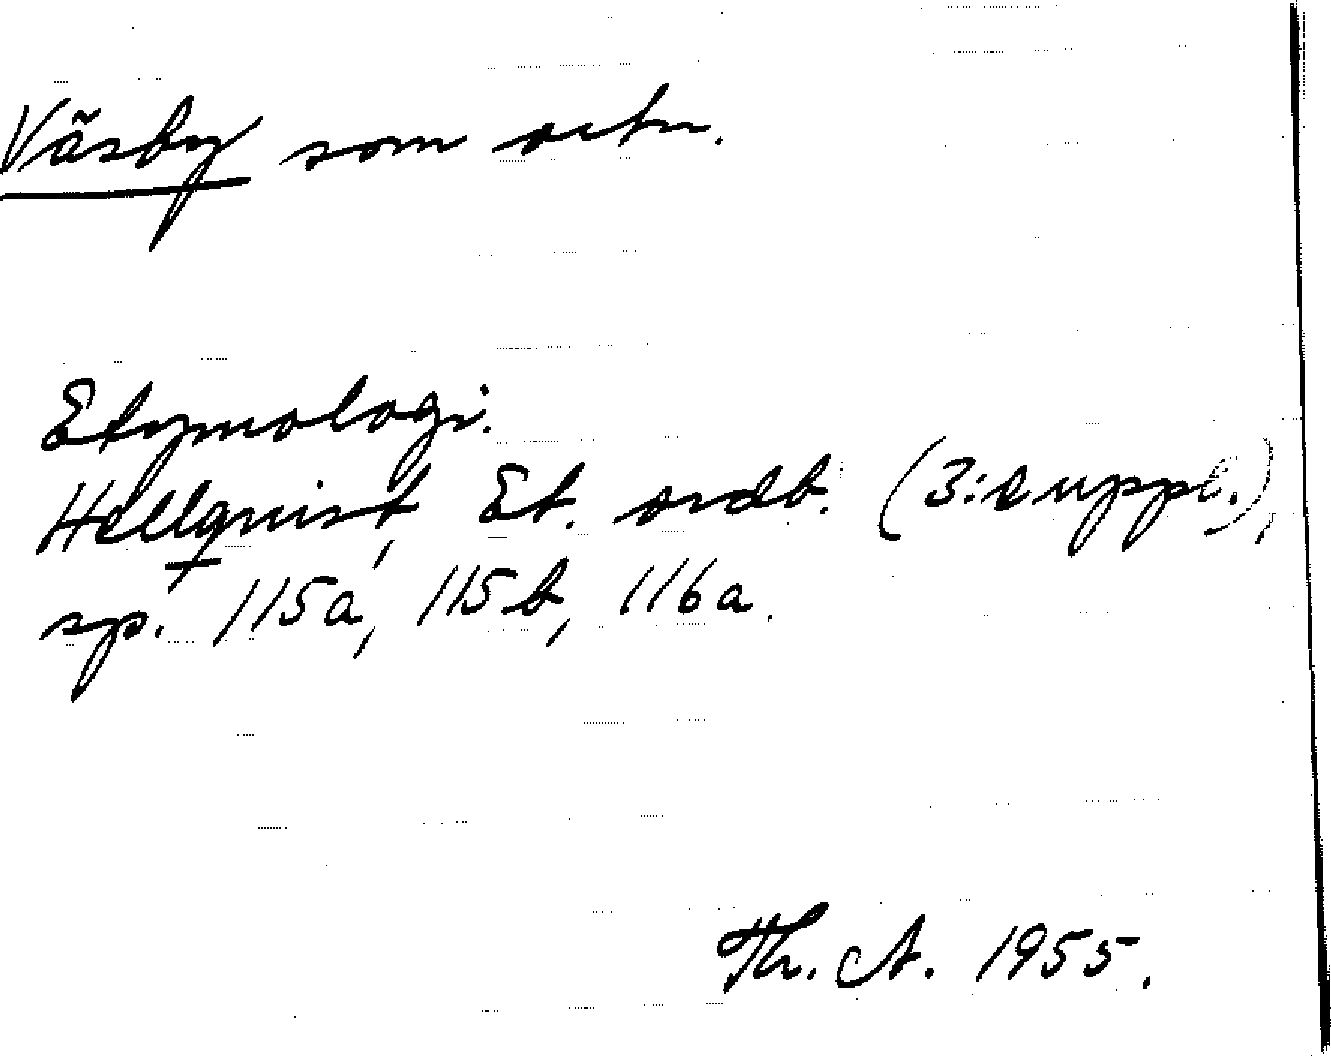 Väsby som ortn.
Etymologi.
Hellquist, Et. ordb. (3:e uppl.),
sp. 115a, 115b, 116a.
Th. A. 1955.